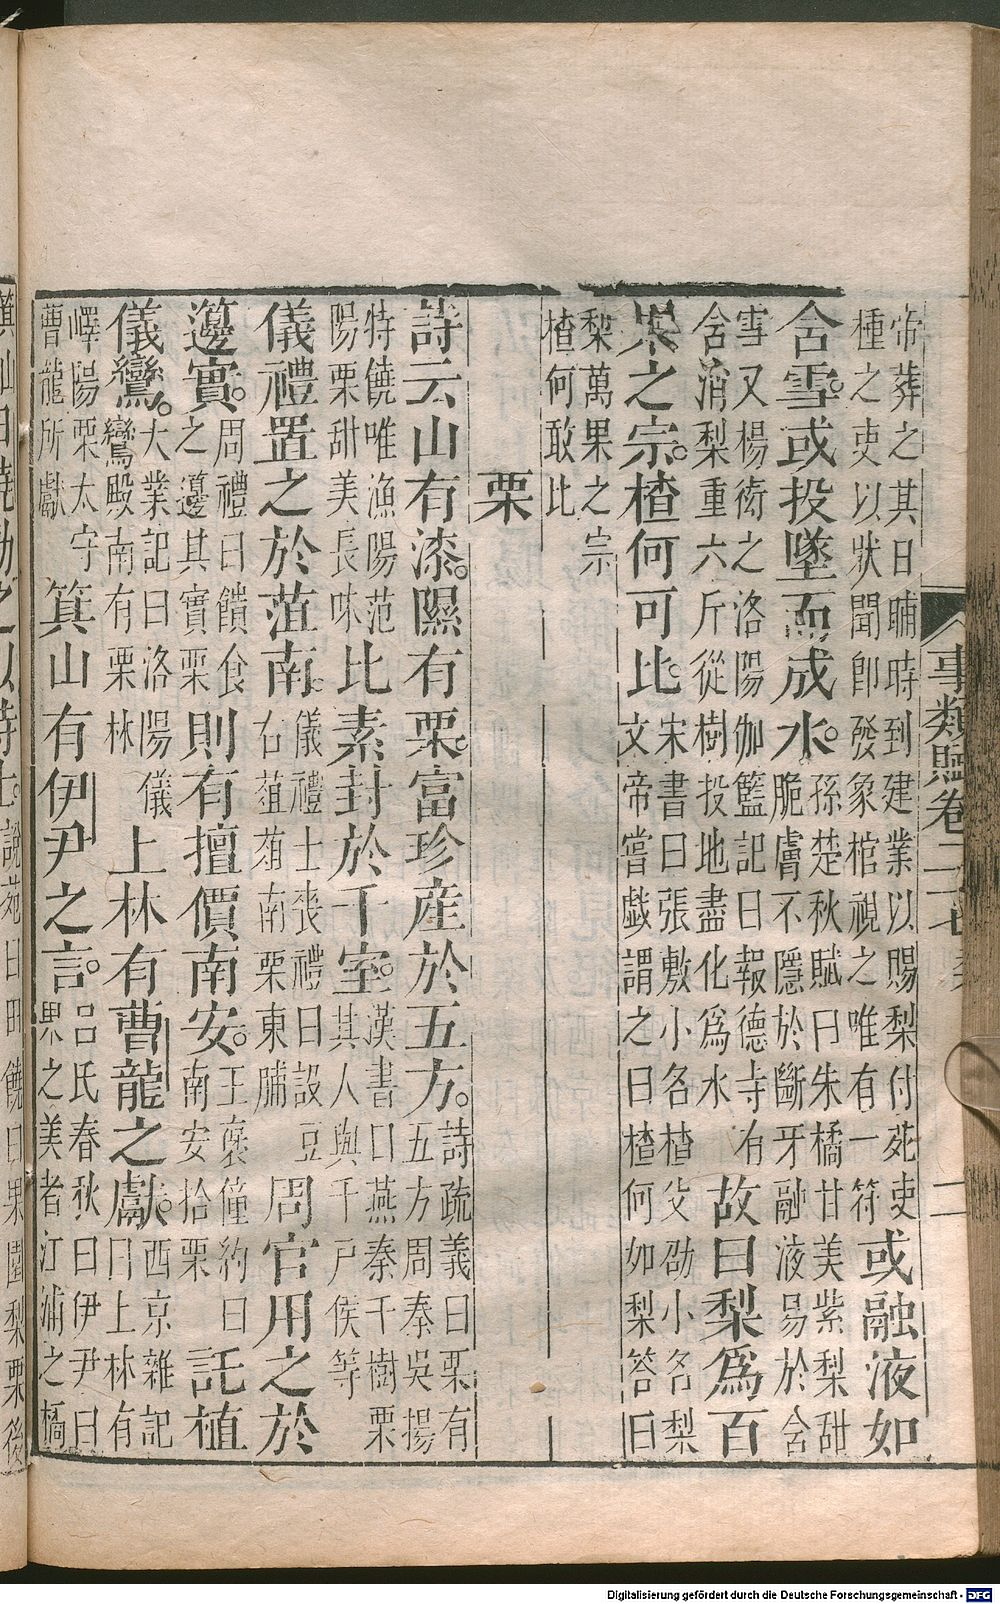 事類賦卷二十七 二
帝葬之其日晡時到建業以賜梨付苑吏
種之吏以狀聞即發象棺視之唯有一符
或融液如
含雪。或投墜而成水。
孫楚秋賦曰朱橘甘美紫梨甜
脆膚不隱於斷牙融液易於含
雪又楊衒之洛陽伽籃記曰報德寺有
含消梨重六斤從樹投地盡化爲水
故曰梨爲百
果之宗。楂何可比。
宋書曰張敷小名楂父劭小名梨
文帝嘗戲謂之曰楂何如梨答曰
梨萬果之宗
楂何敢比
栗
詩云山有漆。隰有栗。富珍產於五方。
詩疏義曰栗有
五方周秦吳揚
特饒唯漁陽范
陽栗甜美長味
比素封於千室。
漢書曰燕秦千樹栗
其人與千戸侯等
儀禮置之於菹南。
儀禮士喪禮曰設豆
右菹菹南栗東脯
周官用之於
籩實。
周禮曰饋食
之籩其實栗
則有擅價南安。
王褒僮約曰
南安拾栗
託植
儀鸞。
大業記曰洛陽儀
鸞殿南有栗林
上林有曹龍之獻。
西京雜記
曰上林有
嶧陽栗太守
曹龍所獻
箕山有伊尹之言。
呂氏春秋曰伊尹曰
果之美者江浦之橘
說苑曰田饒曰果園梨栗後
Digitalisierung gefördert durch die Deutsche Forschungsgemeinschaft - DFG